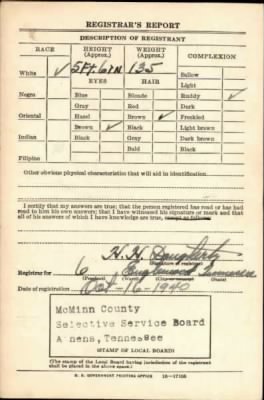 REGISTRAR'S REPORT
DESCRIPTION OF REGISTRANT
RACE HEIGHT (Approx.) WEIGHT (Approx.) COMPLEXION
White ✓ 5 Ft. 6 In 135 Sallow
EYES HAIR Light
Negro Blue Blonde Ruddy ✓
Gray Red Dark
Oriental Hazel Brown ✓ Freckled
Brown ✓ Black Light brown
Indian Black Gray Dark brown
Bald Black
Filipino
Other obvious physical characteristics that will aid in identification
I certify that my answers are true; that the person registered has read or has had
read to him his own answers; that I have witnessed his signature or mark and that
all of his answers of which I have knowledge are true, except as follows:
H. H. Dougherty
(Signature of registrar)
Registrar for 6 Englewood Tennessee
(Precinct) (City or county) (State)
Date of registration Oct-16-1940
McMinn County
Selective Service Board
A nens, Tennessee
(STAMP OF LOCAL BOARD)
(The stamp of the Local Board having jurisdiction of the registrant
shall be placed in the above space.)
U. S. GOVERNMENT PRINTING OFFICE 16-17105